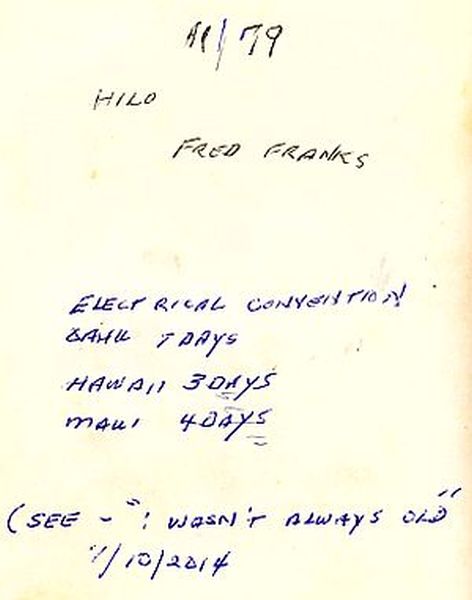 /79
HILO
FRED FRANKS
ELECTRICAL CONVENTION
7 DAYS
HAWAII 3 DAYS
MAUI 4 DAYS
(SEE - "I WASN'T ALWAYS OLD"
/10/2014